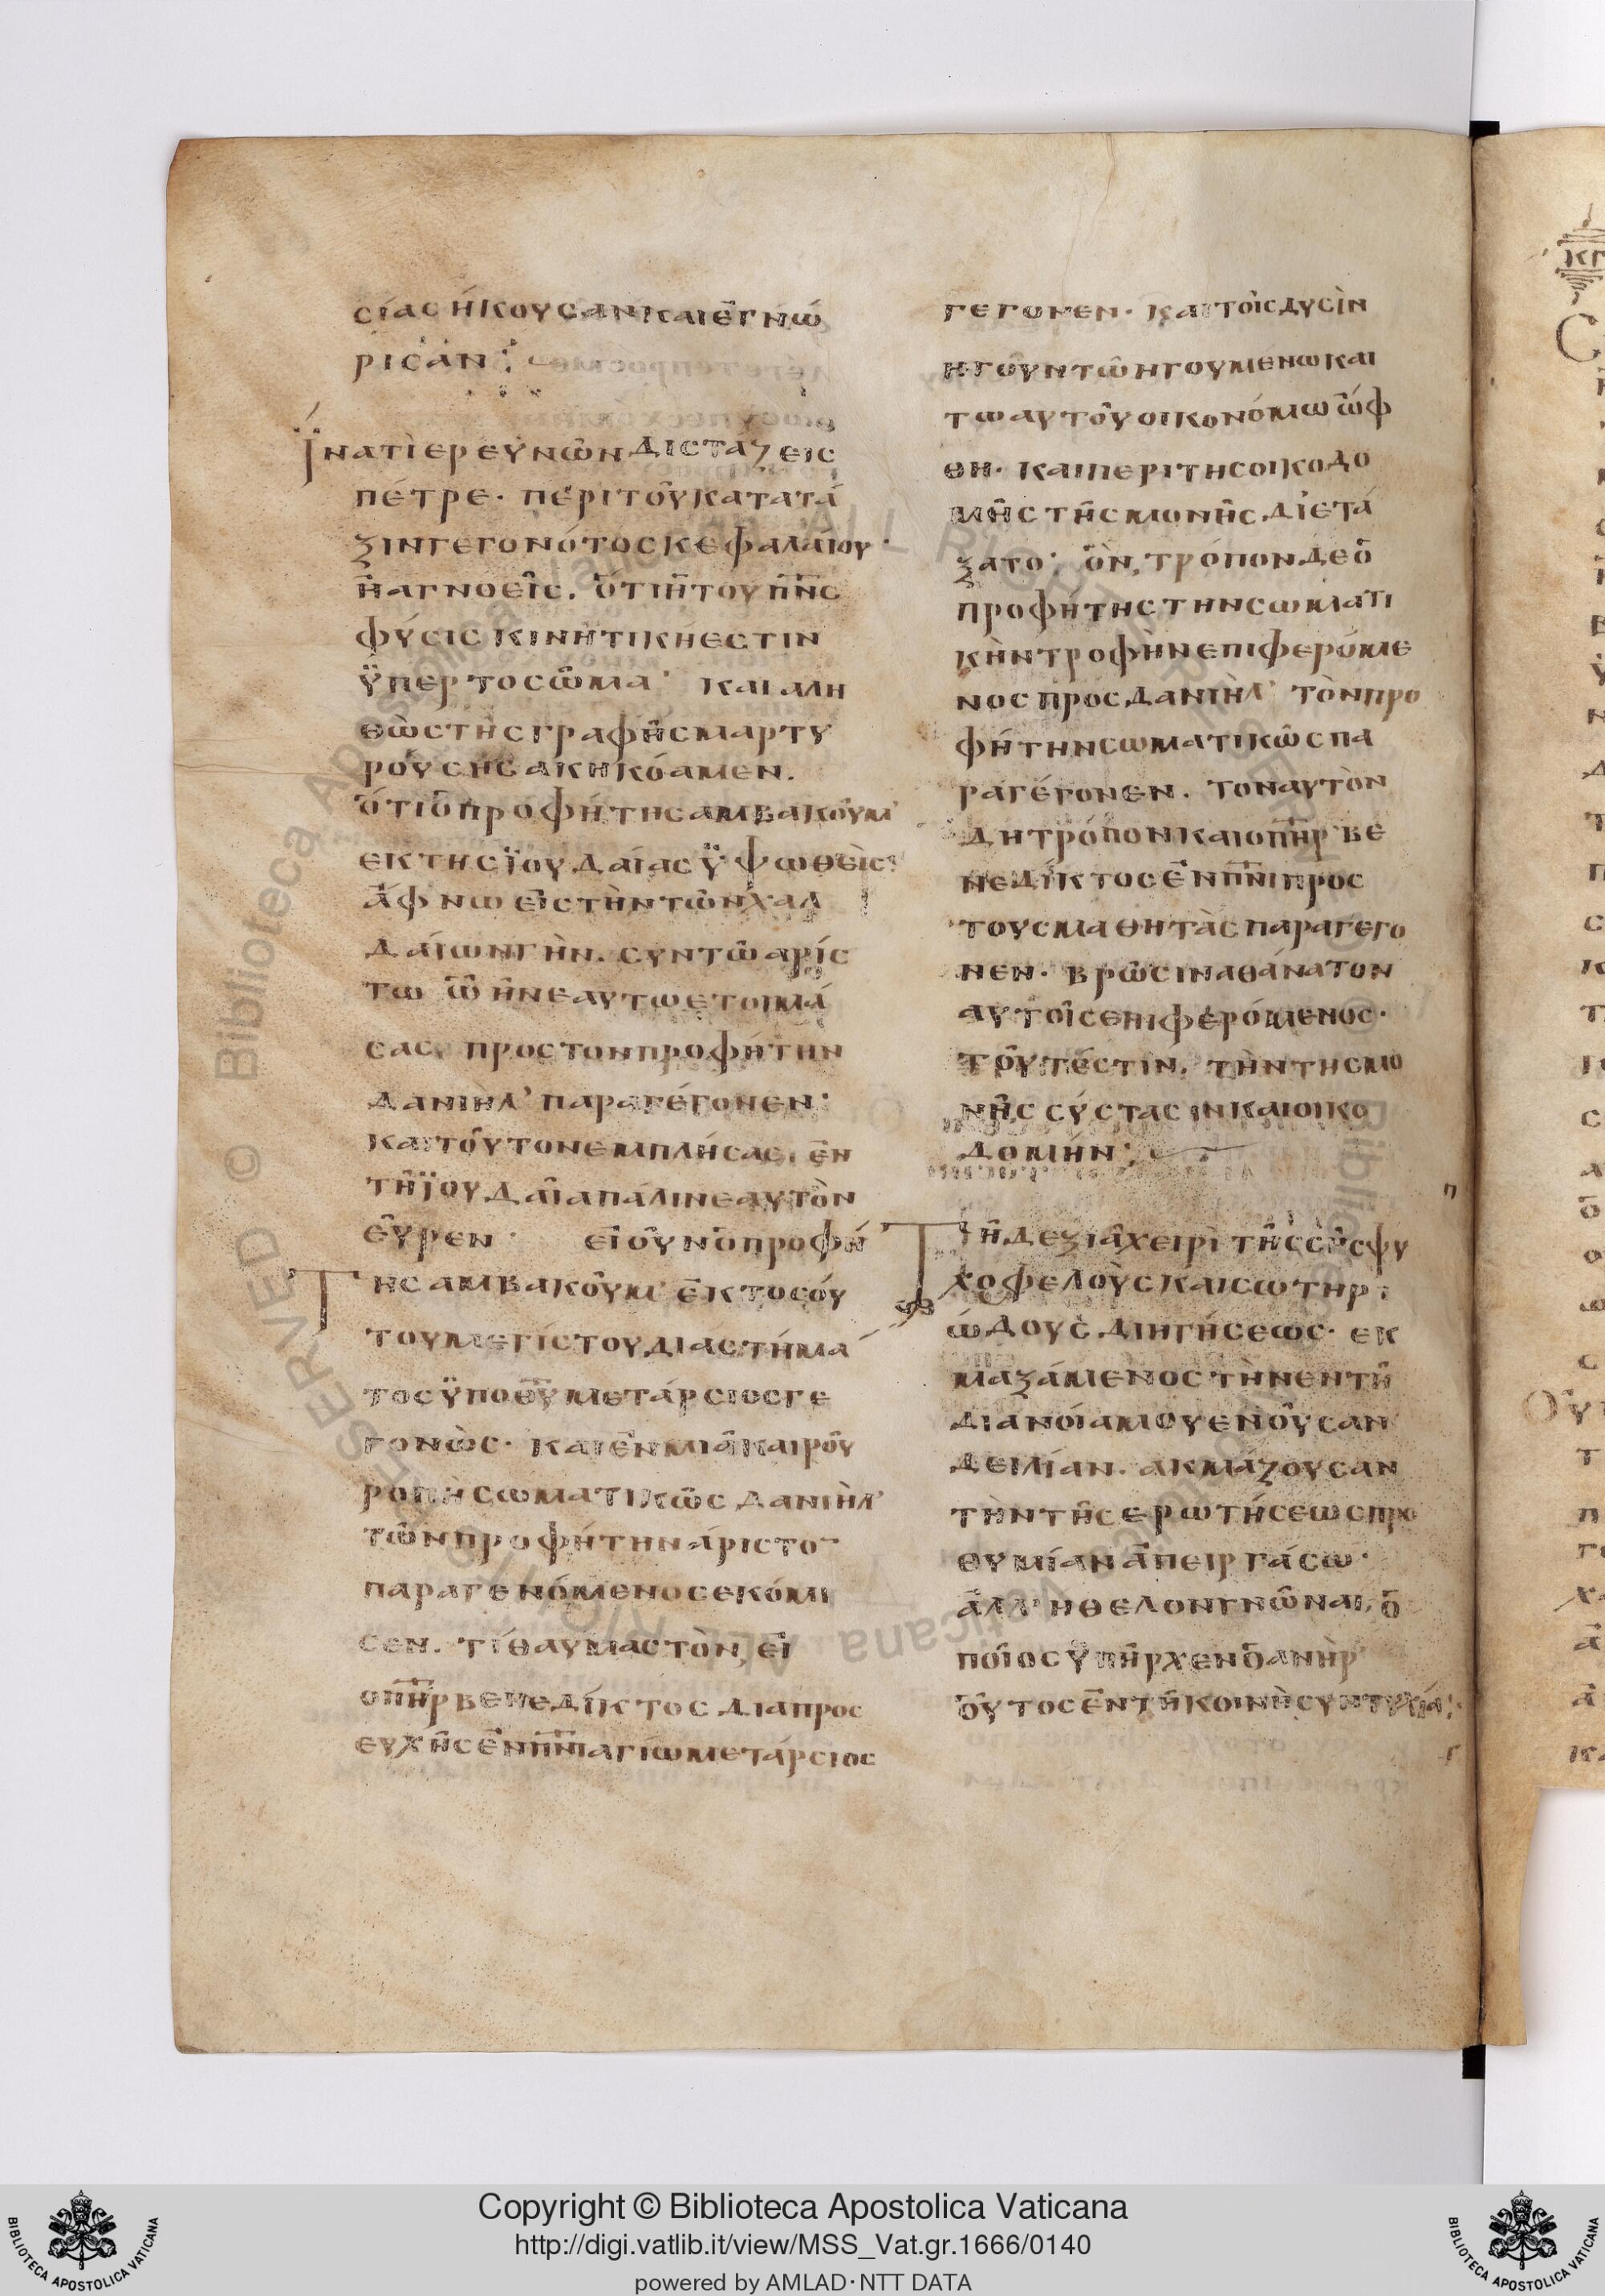 σίας ἤκουσαν καὶ ἐγνώ
ρισαν:
Ἱνατί ἐρευνῶν διστάζεις
πέτρε· περὶ τοῦ κατὰ τά
ξιν γεγονότος κεφαλαίου·
ἢ ἀγνοεῖς. ὅτι ἡ τοῦ π̅ν̅ς
φύσις κινητική ἐστιν
ὑπὲρ τὸ σῶμα· καὶ ἀλη
θῶς τῆς γραφῆς μαρτυ
ρούσης ἀκηκόαμεν.
ὅτι ὁ προφήτης ἀμβακοὺμ
ἐκ τῆς ϊουδαίας ὑψωθεὶς
ἄφνω εἰς τὴν τῶν χαλ
δαίων γῆν. σὺν τῶ ἀρίσ
τω ῶ ἦν ἑαυτῶ ἑτοιμά
σας, πρὸς τὸν προφήτην
δανιὴλ παραγέγονεν·
καὶ τοῦτον ἐμπλήσας, ἐν
τῆ ϊουδαία πάλιν ἑαυτὸν
εὗρεν· εἰ οὖν ὁ προφή
Της ἀμβακοὺμ ἐκ τοσού
του μεγίστου διαστήμα
τος ὑπὸ θ̅υ̅ μετάρσιος γε
γονὼς· καὶ ἐν μιᾶ καιροῦ
ροπῆ σωματικῶς δανιὴλ
τῶν προφήτην ἄριστο̅
παραγενόμενος ἐκόμι
σεν. τί θαυμαστὸν, εἰ
ὁ π̅η̅ρ βενεδίκτος διὰ προσ
ευχῆς ἐν π̅ν̅ι ἁγίω μετάρσιος
γέγονεν· καὶ τοῖς δυσὶν
ἤγουν τῶ ἡγουμένω καὶ
τῶ αὐτοῦ οἰκονόμω ὤφ
θη· καὶ περὶ τῆς οἰκοδο
μῆς τῆς μονῆς διετά
ξατο· ὃν τρόπον δὲ ὁ
προφήτης τὴν σωματι
κὴν τροφὴν ἐπιφερόμε
νος πρὸς δανιὴλ τὸν προ
φήτην σωματικῶς πα
ραγέγονεν. τὸν αὐτὸν
δὴ τρόπον καὶ ὁ π̅η̅ρ βε
νεδίκτος ἐν π̅ν̅ι πρὸς
τοὺς μαθητὰς παραγέγο
νεν· βρῶσιν ἀθάνατον
αὐτοῖς ἐπιφερόμενος·
τοῦτέστιν, τὴν τῆς μο
νῆς σύστασιν καὶ οἰκο
δομήν:
Τῆ δεξιᾶ χειρὶ τῆς σῆς ψυ
χοφελοὺς καὶ σωτηρι
ώδους διηγήσεως· ἐκ
μαξάμενος τὴν ἐν τῆ
διανοία μου ἐνοῦσαν
δειλίαν. ἀκμάζουσαν
τὴν τῆς ἐρωτήσεως προ
θυμίαν ἀπειργάσω·
ἀλλ' ἤθελον γνῶναι, ὁ
ποῖος ὑπῆρχεν ὁ ἀνὴρ
οὗτος ἐν τῆ κοινῆ συντυχία;
Copyright © Biblioteca Apostolica Vaticana
http://digi.vatlib.it/view/MSS_Vat.gr.1666/0140
powered by AMLAD·NTT DATA
BIBLIOTECA APOSTOLICA VATICANA
BIBLIOTECA APOSTOLICA VATICANA